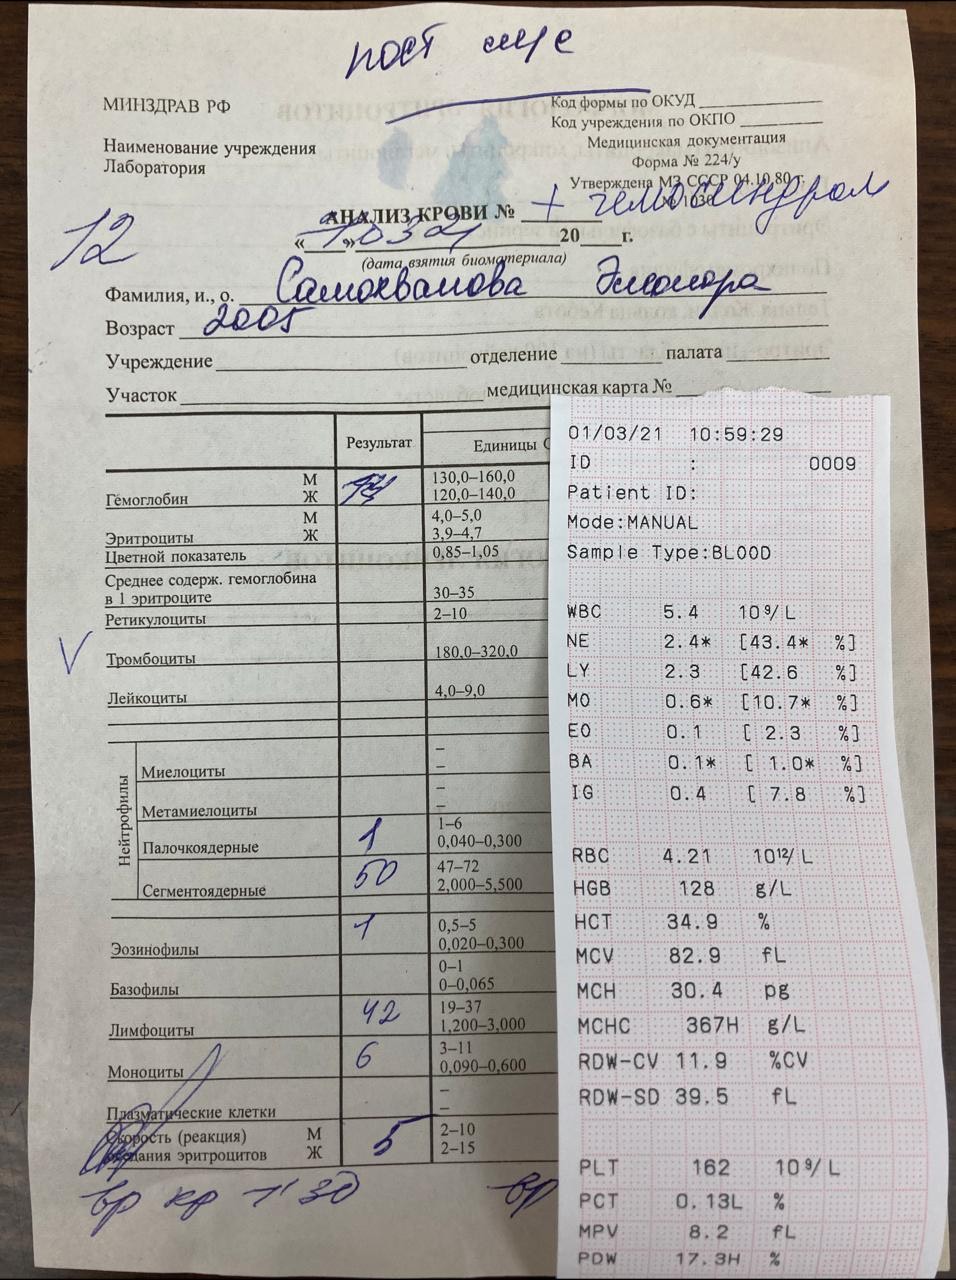 пост
МИНЗДРАВ РФ
Код формы по ОКУД
Код учреждения по ОКПО
Наименование учреждения
Лаборатория
Медицинская документация
Форма № 224/у
Утверждена МЗ СССР 04.10.80 г.
№ 1030
12
АНАЛИЗ КРОВИ № + гемосиндром
« » 20 г.
(дата взятия биоматериала)
Фамилия, и., о. Самохвалова Элеонора
Возраст 2005
Учреждение отделение палата
Участок медицинская карта №
Результат
Единицы С
Гемоглобин М Ж
130,0–160,0
120,0–140,0
Эритроциты М Ж
4,0–5,0
3,9–4,7
Цветной показатель 0,85–1,05
Среднее содерж. гемоглобина
в 1 эритроците 30–35
Ретикулоциты 2–10
V
Тромбоциты 180,0–320,0
Лейкоциты 4,0–9,0
Нейтрофилы
Миелоциты – –
Метамиелоциты – –
Палочкоядерные 1 1–6
0,040–0,300
Сегментоядерные 50 47–72
2,000–5,500
Эозинофилы 1 0,5–5
0,020–0,300
Базофилы 0–1
0–0,065
Лимфоциты 42 19–37
1,200–3,000
Моноциты 6 3–11
0,090–0,600
Плазматические клетки – –
Скорость (реакция) М 5 2–10
оседания эритроцитов Ж 2–15
вр кр 1'30 вр
01/03/21 10:59:29
ID : 0009
Patient ID:
Mode:MANUAL
Sample Type:BLOOD
WBC 5.4 10⁹/L
NE 2.4* [43.4* %]
LY 2.3 [42.6 %]
MO 0.6* [10.7* %]
EO 0.1 [ 2.3 %]
BA 0.1* [ 1.0* %]
IG 0.4 [ 7.8 %]
RBC 4.21 10¹²/L
HGB 128 g/L
HCT 34.9 %
MCV 82.9 fL
MCH 30.4 pg
MCHC 367H g/L
RDW-CV 11.9 %CV
RDW-SD 39.5 fL
PLT 162 10⁹/L
PCT 0.13L %
MPV 8.2 fL
PDW 17.3H %